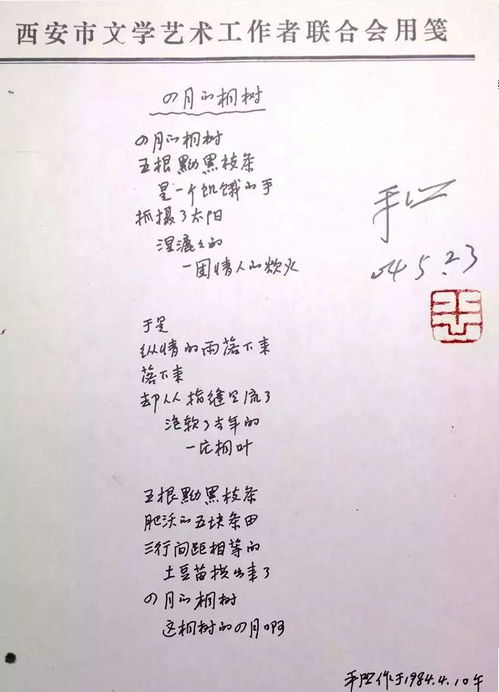 西安市文学艺术工作者联合会用笺
四月的桐树
四月的桐树
五根黝黑枝条
是一个饥饿的手
抓摄了太阳
湿漉々的
一团情人的炊火
平凹
04.5.23
于是
纵情的雨落下来
落下来
却从从指缝里流了
泡软了去年的
一片桐叶
五根黝黑枝条
肥沃的五块条田
三行间距相等的
土豆苗拱出来了
四月的桐树
这桐树的四月啊
平凹作于1984.4.10午